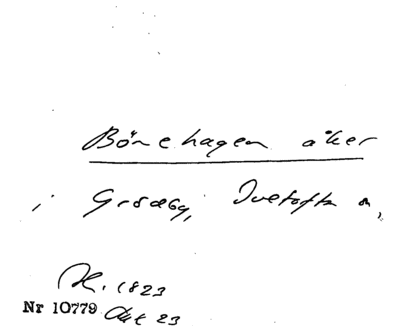 Bönehagen åker
i Grödby, Ivetofta s,
H. 1823
Nr 10779 Akt 23